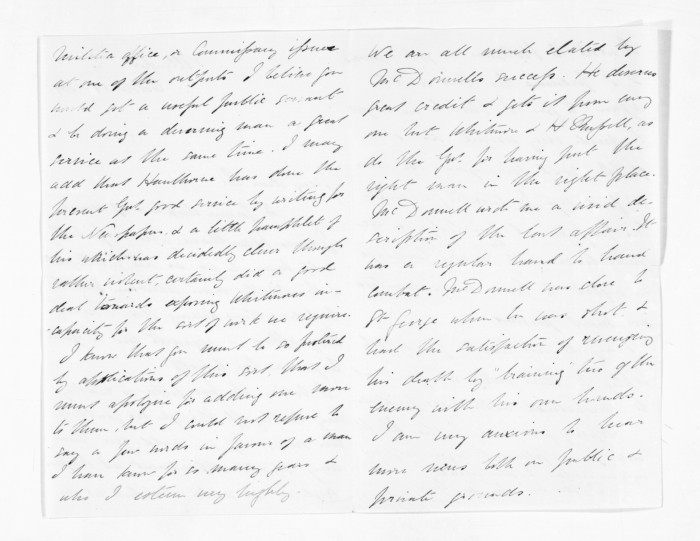 Militia office, or Commissary issuer
at one of the outposts I believe you
would get a useful public servant
& be doing a deserving man a great
service at the same time. I may
add that Hawthorne has done the
present Govt good service by writing for
the Newspapers & a little pamphlet of
his which was decidedly clever though
rather violent, certainly did a good
deal towards exposing Whitmores in-
capacity for the sort of work we require.
I know that you must be so pestered
by applications of this sort that I
must apologize for adding one more
to them but I could not refuse to
say a few words in favour of a man
I have known for so many years &
who I esteem very highly.
We are all much elated by
McDonnells success. He deserves
great credit & gets it from every
one but Whitmore & H Russell, as
do the Govt for having put the
right man in the right place.
McDonnell wrote me a vivid de-
scription of the last affair. It
was a regular hand to hand
combat. McDonnell was close to
St George when he was shot &
had the satisfaction of revenging
his death by "braining" two of the
enemy with his own hands.
I am very anxious to hear
more news both on public &
private grounds.